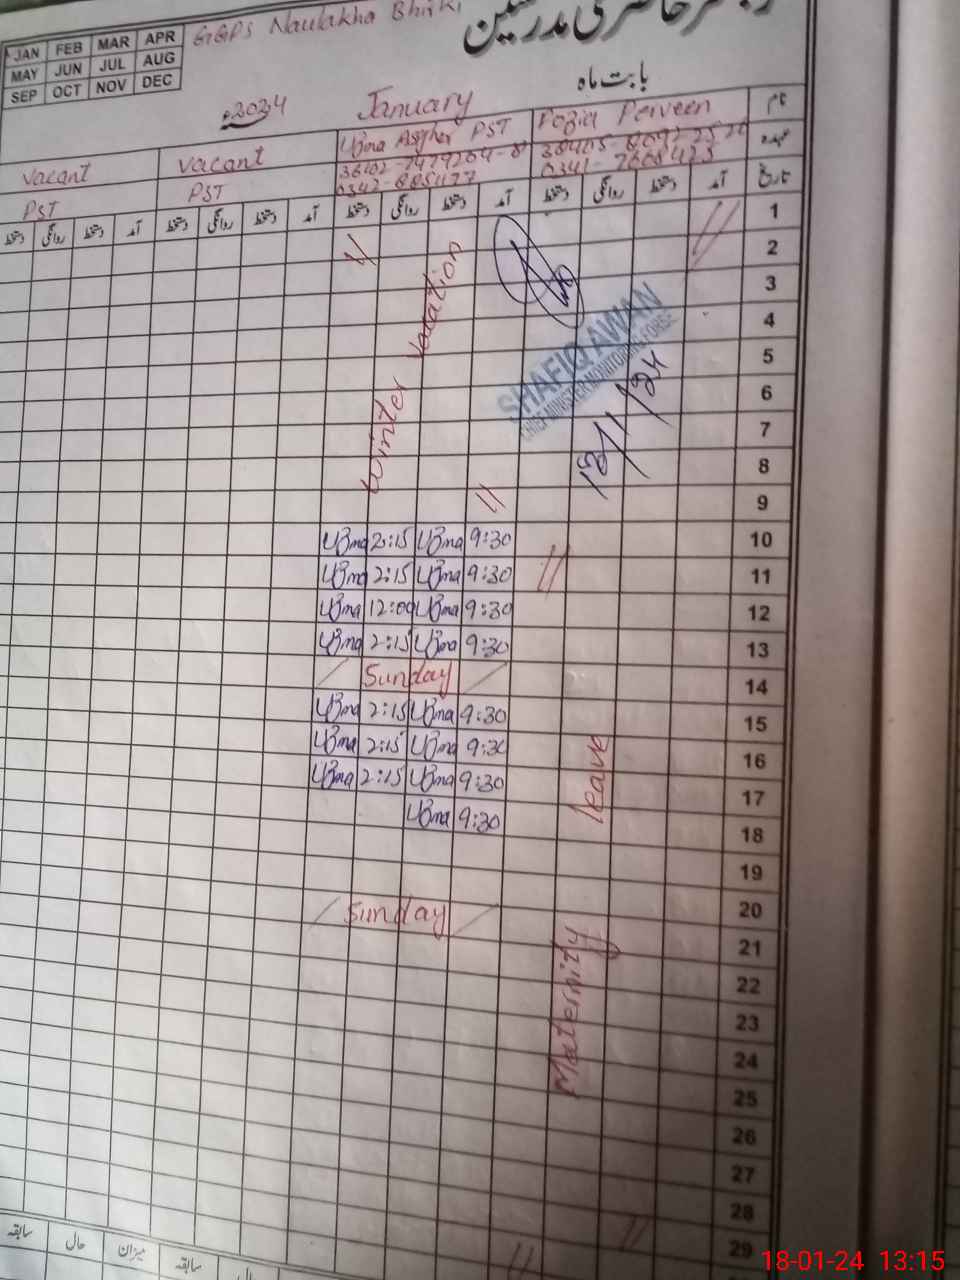 رجسٹر حاضری مدرسین
GGPS Naulakha
JAN FEB MAR APR
MAY JUN JUL AUG
SEP OCT NOV DEC
بابت ماہ
January
نام
Vacant
Vacant
Uzma Asgher PST
Perveen
عہدہ
PST
PST
تاریخ
دستخط روانگی دستخط آمد دستخط روانگی دستخط آمد دستخط روانگی دستخط آمد دستخط روانگی دستخط آمد
Winter Vacation
SHAFIQ AWAN
CHIEF MINISTER MONITORING FORCE
1
2
3
4
5
6
7
8
9
Uzma 2:15 Uzma 9:30 10
Uzma 2:15 Uzma 9:30 11
Uzma 12:00 Uzma 9:30 12
Uzma 2:15 Uzma 9:30 13
Sunday 14
Uzma 2:15 Uzma 9:30 15
Uzma 2:15 Uzma 9:30 16
Uzma 2:15 Uzma 9:30 17
Uzma 9:30 18
19
Sunday 20
21
22
23
24
25
26
27
28
29
Maternity leave
سابقہ حال میزان سابقہ
18-01-24 13:15